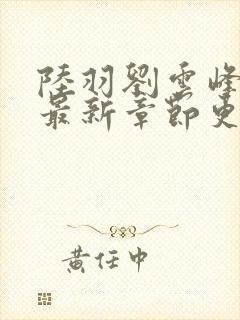 陸羽劉雲峰
最新章節更
黃任中